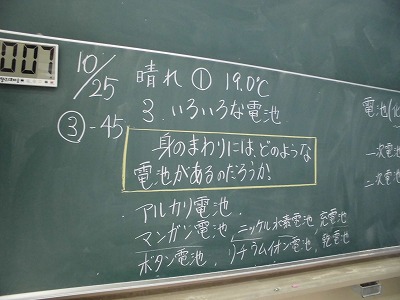 00
10/25 晴れ ① 19.0℃
③-45 3. いろいろな電池
身のまわりには、どのような
電池があるのだろうか。
・アルカリ電池.
マンガン電池, ニッケル水素電池, 充電池
ボタン電池. リチウムイオン電池, 乾電池
電池
一次電池
二次電池